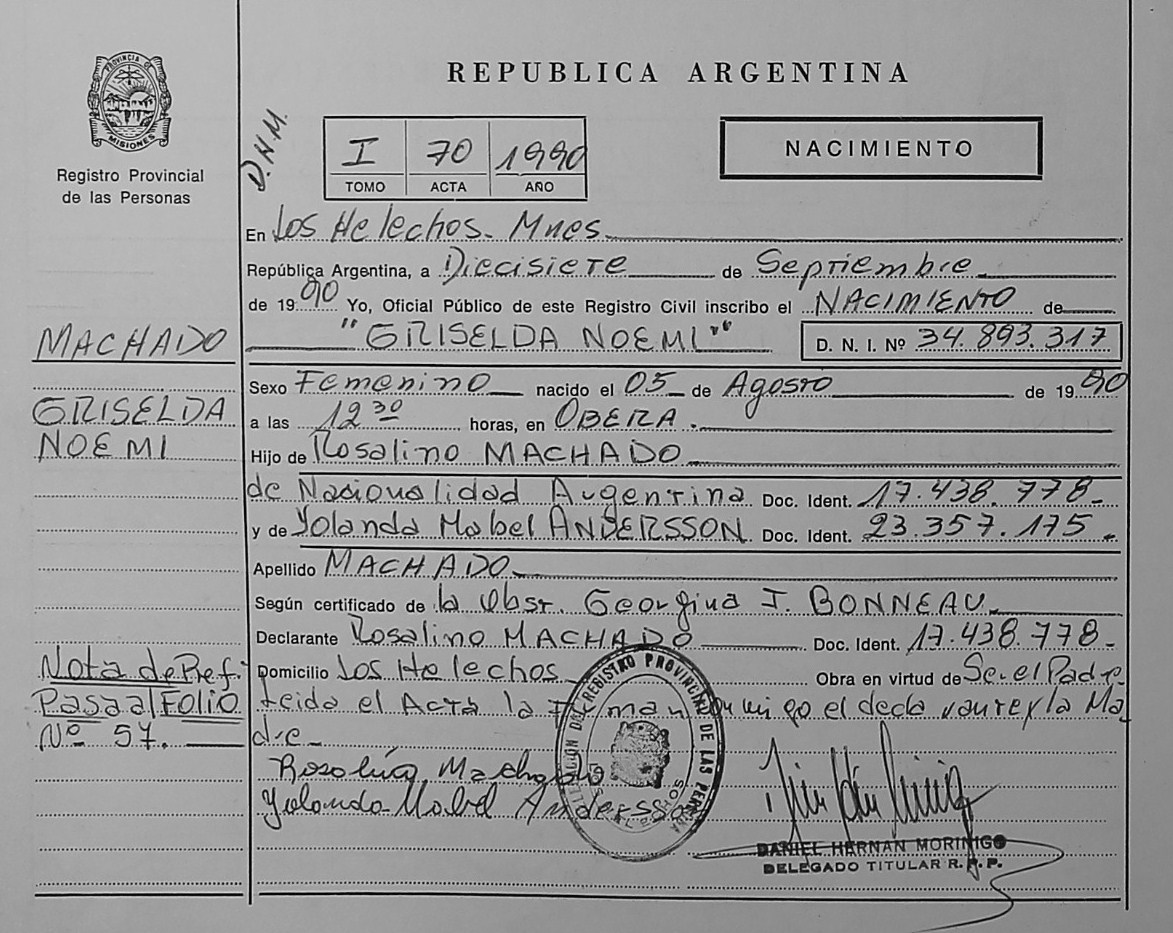 PROVINCIA DE
MISIONES
Registro Provincial
de las Personas
REPUBLICA ARGENTINA
D.N.M.
I 70 1990
TOMO ACTA AÑO
NACIMIENTO
En Los Helechos. Mnes.
República Argentina, a Diecisiete de Septiembre
de 1990 Yo, Oficial Público de este Registro Civil inscribo el NACIMIENTO de
"GRISELDA NOEMI" D. N. I. Nº 34.893.317
MACHADO
GRISELDA
NOEMI
Sexo Femenino nacido el 05 de Agosto de 1990
a las 12 30 horas, en OBERA.
Hijo de Rosalino MACHADO
de Nacionalidad Argentina Doc. Ident. 17.438.778-
y de Yolanda Mabel ANDERSSON Doc. Ident. 23.357.175-
Apellido MACHADO
Según certificado de la Obst. Georgina J. BONNEAU
Declarante Rosalino MACHADO Doc. Ident. 17.438.778-
Domicilio Los Helechos Obra en virtud de Ser el Padre
Nota de Ref:
Pasa al FOLIO
Nº 57.
Leida el Acta la Firman conmigo el declarante y la Ma
dre
Rosalino Machado
Yolanda Mabel Andersson
REGISTRO PROVINCIAL DE LAS
DANIEL HERNAN MORINIGO
DELEGADO TITULAR R. P. P.